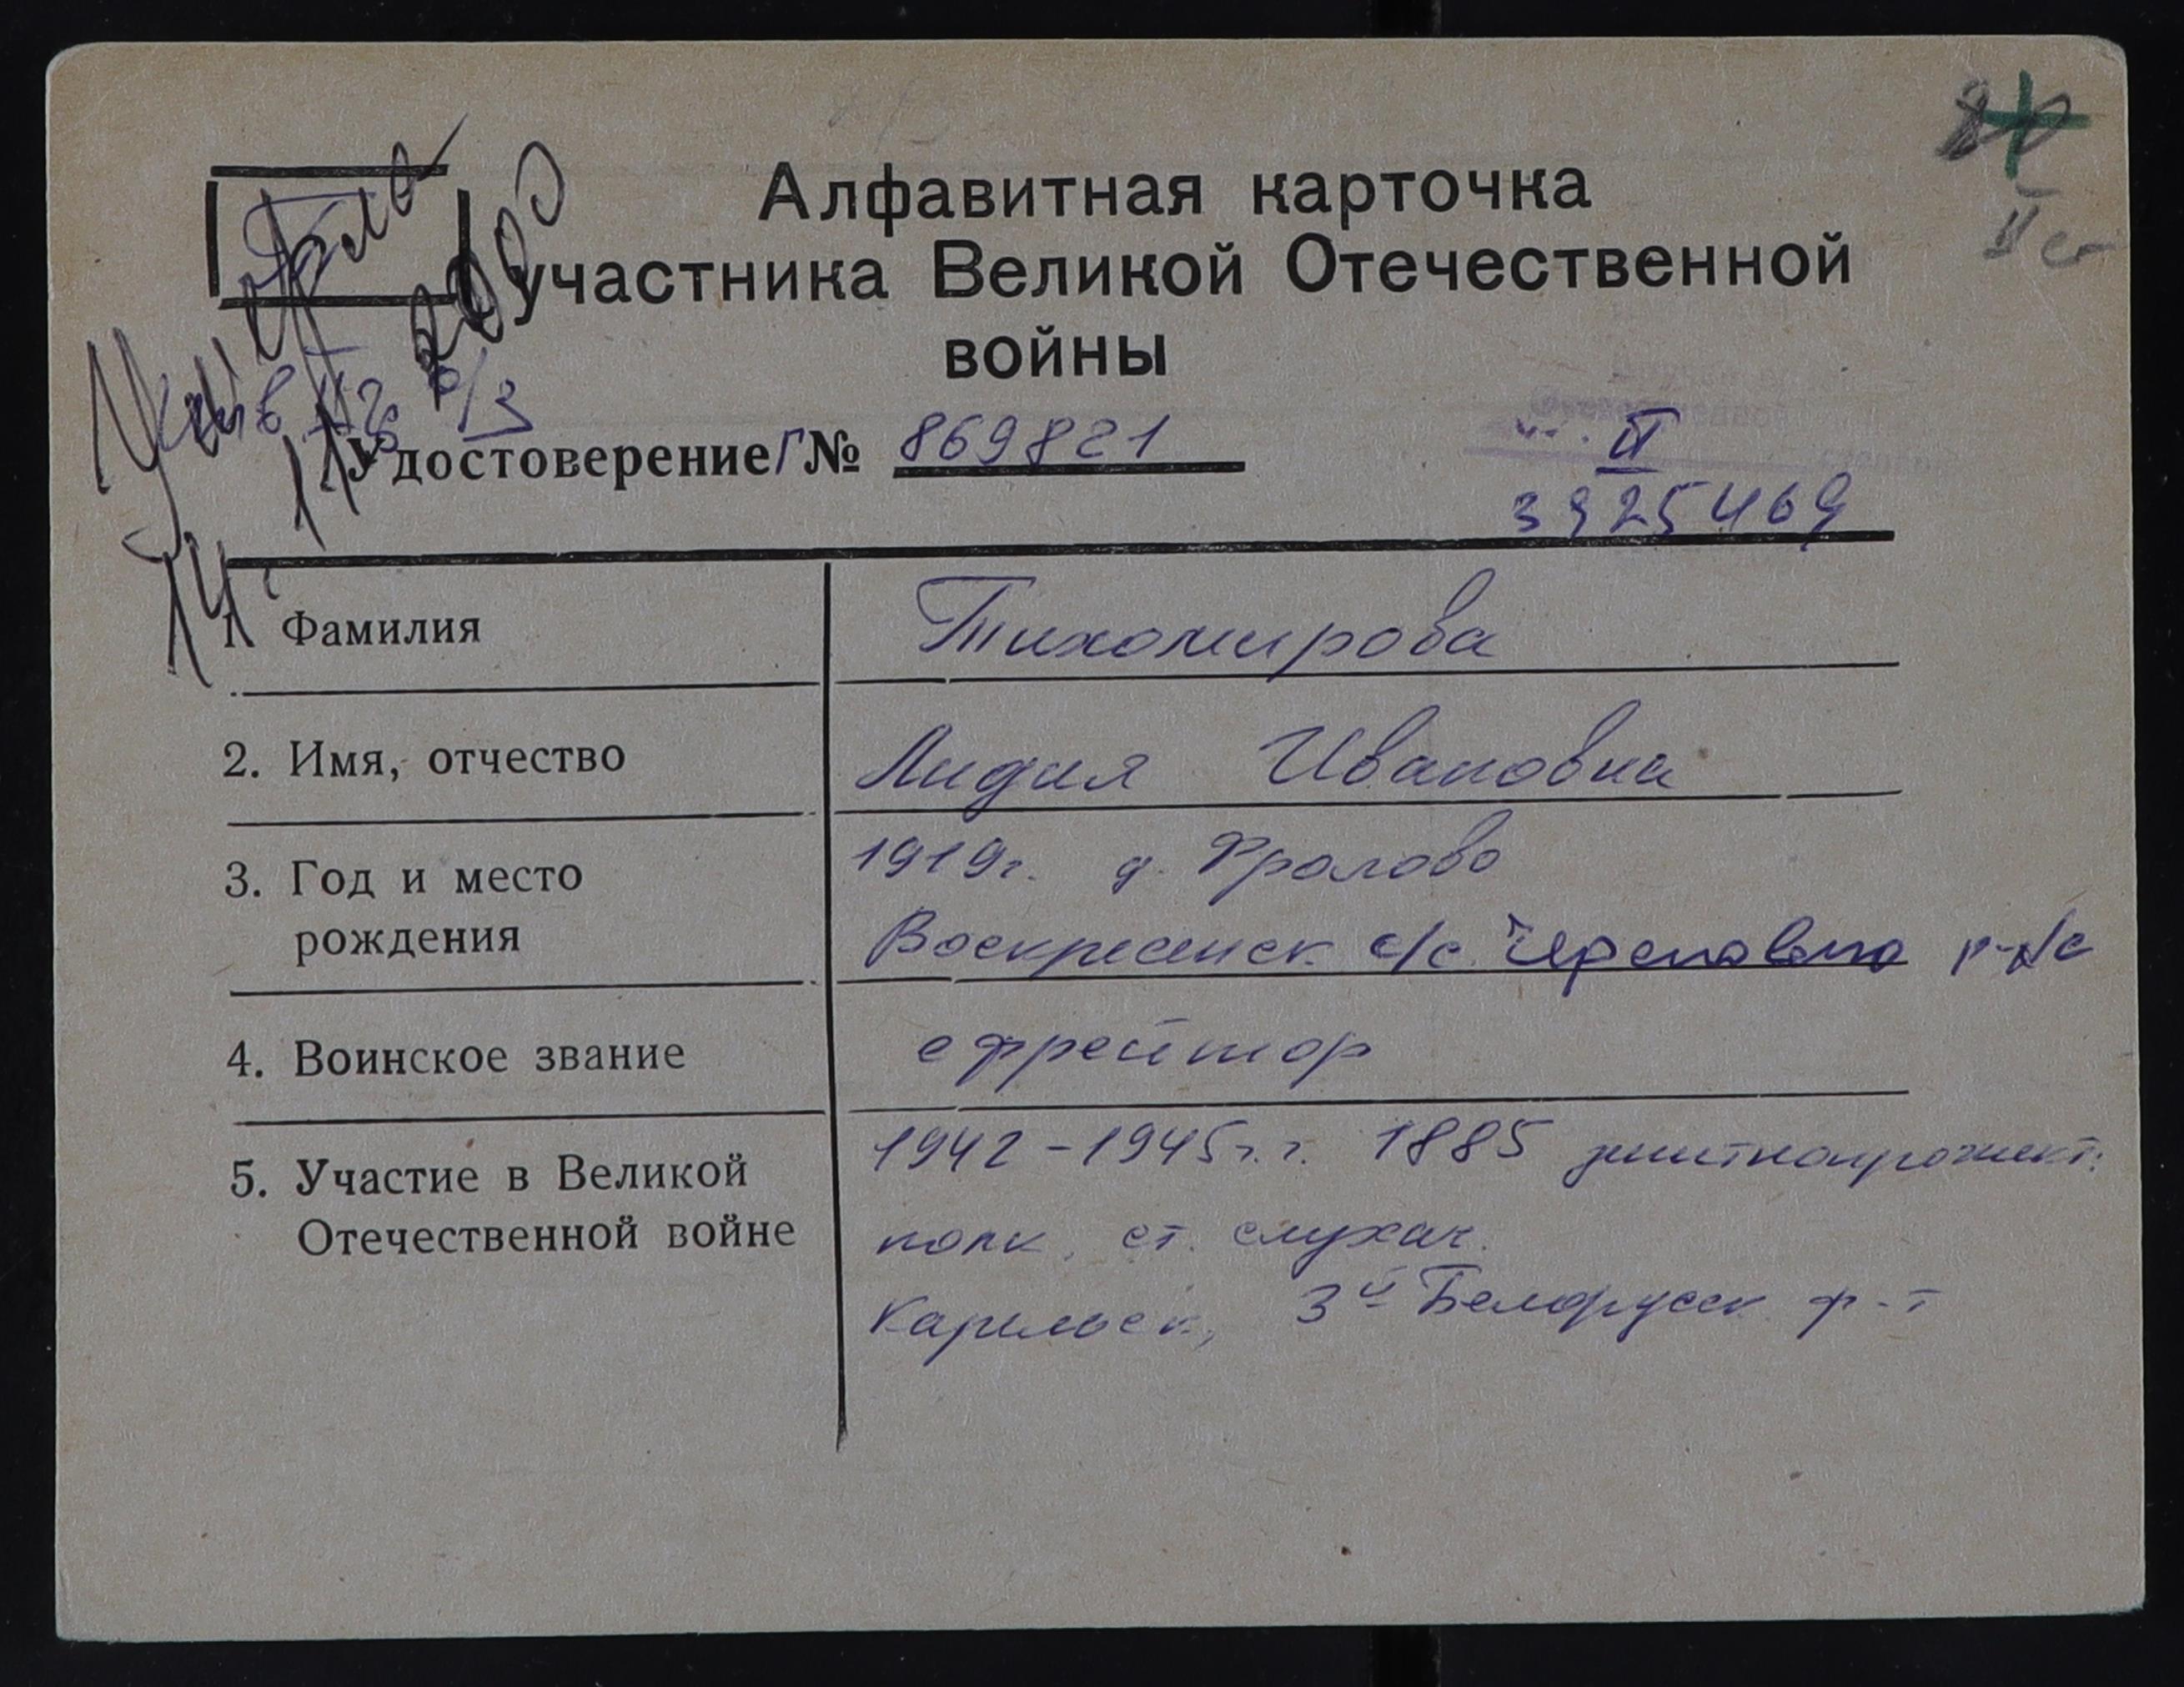 Умерла
14.11.2000
Алфавитная карточка
участника Великой Отечественной
войны
Удостоверение Г № 869821
II
3925469
1. Фамилия Тихомирова
2. Имя, отчество Лидия Ивановна
3. Год и место 1919г. д. Фролово
рождения Воскресенск. с/с. р-на
4. Воинское звание ефрейтор
5. Участие в Великой 1942-1945г.г. 1885 зенитнопрожект.
Отечественной войне полк, ст. слухач.
Карельск, 3й Белорусск ф-т